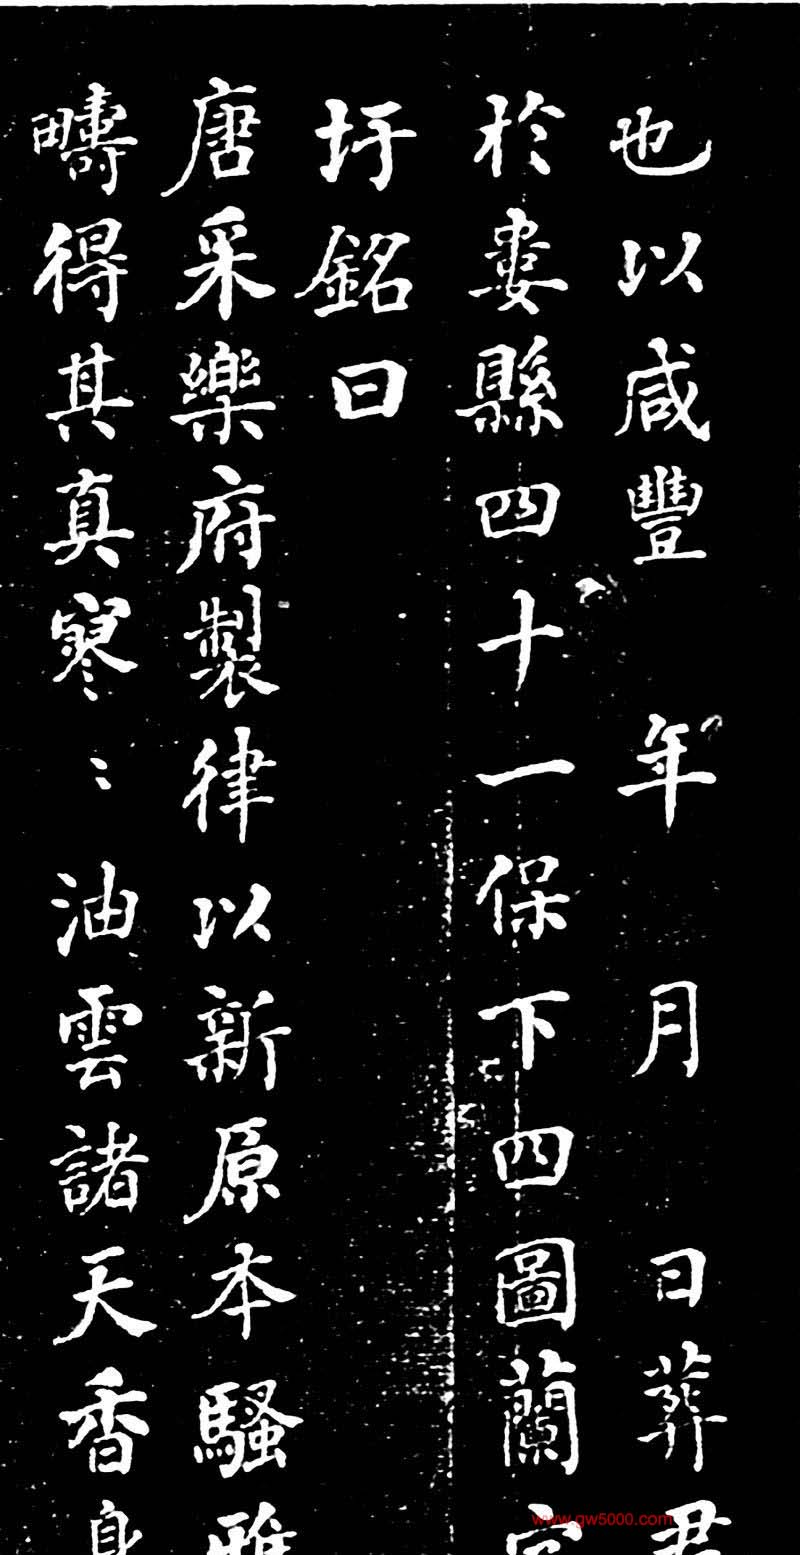 也以咸豐 年 月 日葬君
於婁縣四十一保下四圖蘭字
圩銘曰
唐采樂府製律以新原本騷雅
疇得其真寥〻油雲諸天香身
www.gw5000.com